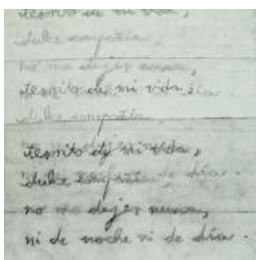 de mi vida,
dulce compañía,
no me dejes nunca,
de mi vida,
dulce compañía,
de mi vida,
dulce compañía, de día.
no me dejes nunca,
ni de noche ni de día.